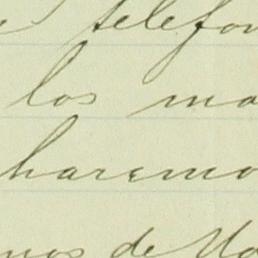 telefon
los ma
haremo
mos de Ma